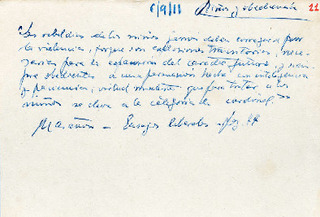 Niños y obediencia 11
"Las rebeldías de los niños jamás deben corregirse por
la violencia, porque son explosiones transitorias, nece-
sarias para la expansión del carácter futuro, y siem-
pre obedientes a una persuasión hecha con inteligencia
y paciencia; virtud modesta que para tratar a los
niños se eleva a la categoría de cardenal."
Marañón - Ensayos liberales - pág. 77